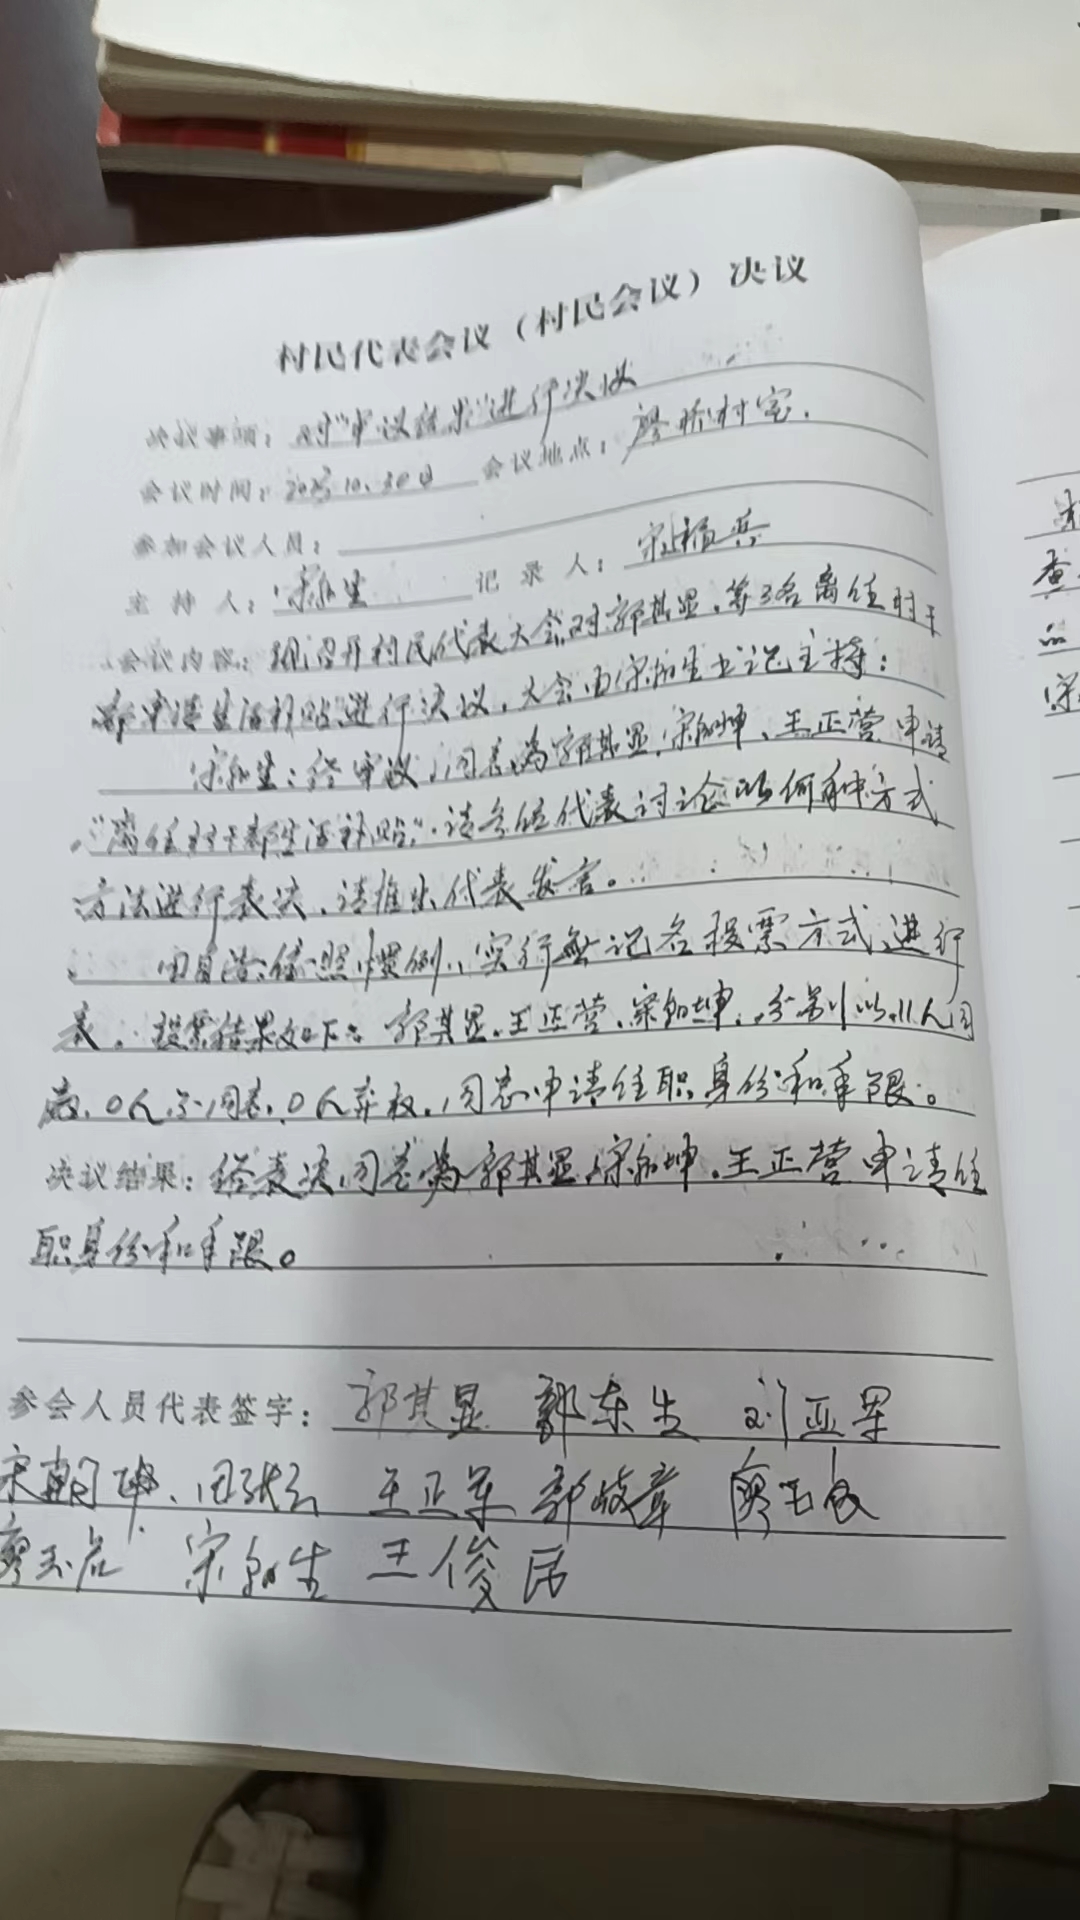 村民代表会议（村民会议）决议
决议事项：对“审议结果”进行决议
会议时间：2025.10.30日 会议地点：廖桥村室.
参加会议人员：
主持人：宋 生 记录人：宋 福兵
会议内容：现召开村民代表大会对郭其显，等3名离任村干
部申请生活补贴”进行决议，大会由宋 生书记主持：
宋 生：经审议，同意为郭其显，宋 坤、王正营申请
“离任村干部生活补贴”.请各位代表讨论以何种方式
方法进行表决，请推出代表发言。
田 ：依照惯例，实行无记名投票方式进行
表. 投票结果如下：郭其显、王正营、宋 坤，分别以11人同
意，0人不同意，0人弃权，同意申请任职身份和年限。
决议结果：经表决同意为郭其显，宋 坤，王正营申请任
职身份和年限。
参会人员代表签字：郭其显 郭东生 刘亚军
宋朝坤、田 王正军 郭岐章 廖
廖玉 宋 生 王俊
查